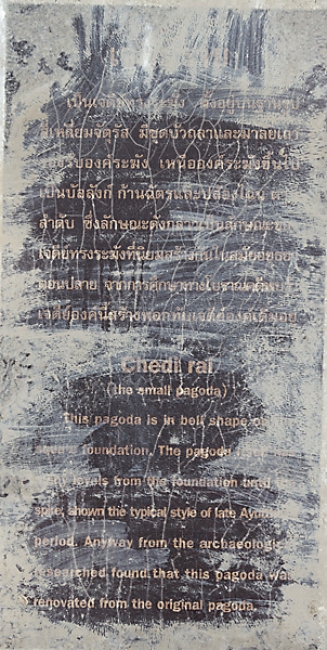 เป็นเจดีย์ทรงระฆัง ตั้งอยู่บนฐาน
สี่เหลี่ยมจตุรัส มีชุดบัวถลาและมาลัยเถา
รองรับองค์ระฆัง เหนือองค์ระฆังขึ้นไป
เป็นบัลลังก์ ก้านฉัตรและปล้องไฉน
ลำดับ ซึ่งลักษณะดังกล่าว
เจดีย์ทรงระฆังที่นิยมสร้างกันในสมัยอยุธยา
ตอนปลาย จากการศึกษาทางโบราณคดี
เจดีย์องค์นี้สร้าง
Chedi rai
(the small pagoda)
This pagoda is in bell shape
foundation. The pagoda
levels from the foundation
spire, shown the typical style of late
period. Anyway from the
researched found that this pagoda was
renovated from the original pagoda.